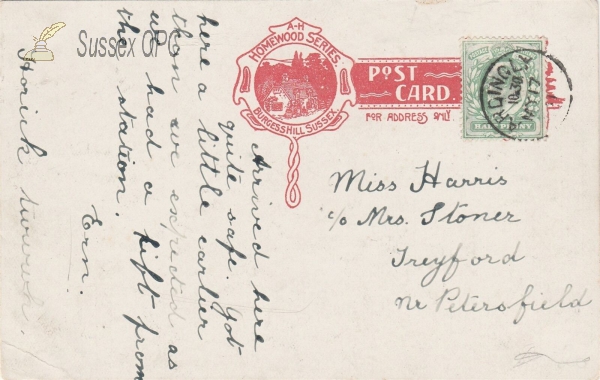 Sussex OPC
A-H
HOMEWOOD SERIES.
BURGESS HILL, SUSSEX.
POST
CARD.
FOR ADDRESS ONLY
HALFPENNY
Miss Harris
c/o Mrs. Stoner
Treyford
Nr Petersfield
Arrived here
quite safe. Got
here a little earlier
than we expected as
we had a lift from
the station.
Ern.